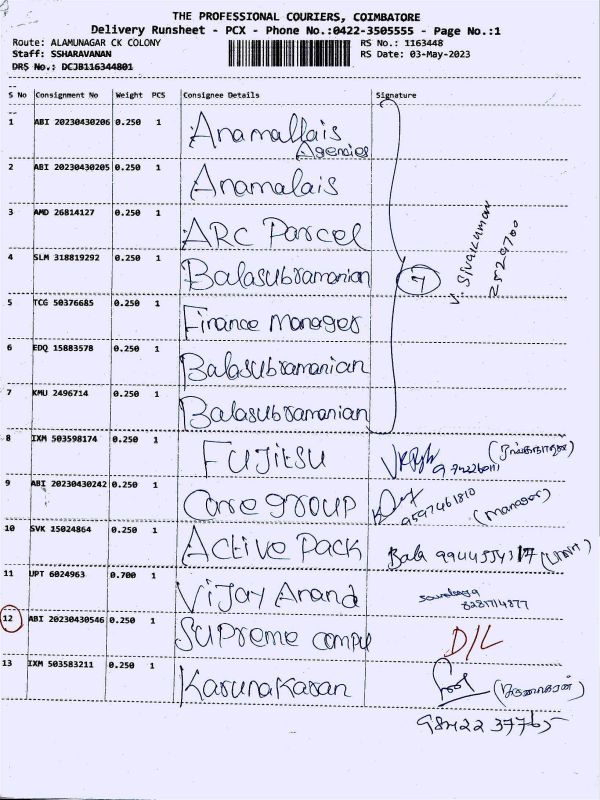 THE PROFESSIONAL COURIERS, COIMBATORE
Delivery Runsheet - PCX - Phone No.:0422-3505555 - Page No.:1
Route: ALAMUNAGAR CK COLONY RS No.: 1163448
Staff: SSHARAVANAN RS Date: 03-May-2023
DRS No.: DCJB116344801
S No Consignment No Weight PCS Consignee Details Signature
1 ABI 20230430206 0.250 1 Anamallais
Agencies
2 ABI 20230430205 0.250 1 Anamalais
3 AMD 26814127 0.250 1 ARC Parcel
V. Sivakumar
2520700
4 SLM 318819292 0.250 1 Balasubramanian 7
5 TCG 50376685 0.250 1 Finance Manager
6 EDQ 15883578 0.250 1 Balasubramanian
7 KMU 2496714 0.250 1 Balasubramanian
8 IXM 503598174 0.250 1 Fujitsu
9 ABI 20230430242 0.250 1 Care group (Manager)
10 SVK 15024864 0.250 1 Active Pack Bala
11 UPT 6024963 0.700 1 Vijay Anand
8281714877
12 ABI 20230430546 0.250 1 Supreme compu D/L
13 IXM 503583211 0.250 1 Karunakaran (கருணாகரன்)
98422 37765